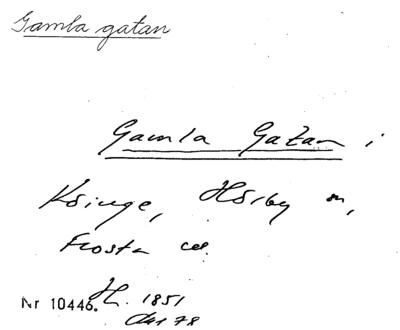 Gamla gatan
Gamla Gatan i
Ksinge, Hörby sn,
Frosta
Nr 10446. H. 1851
78